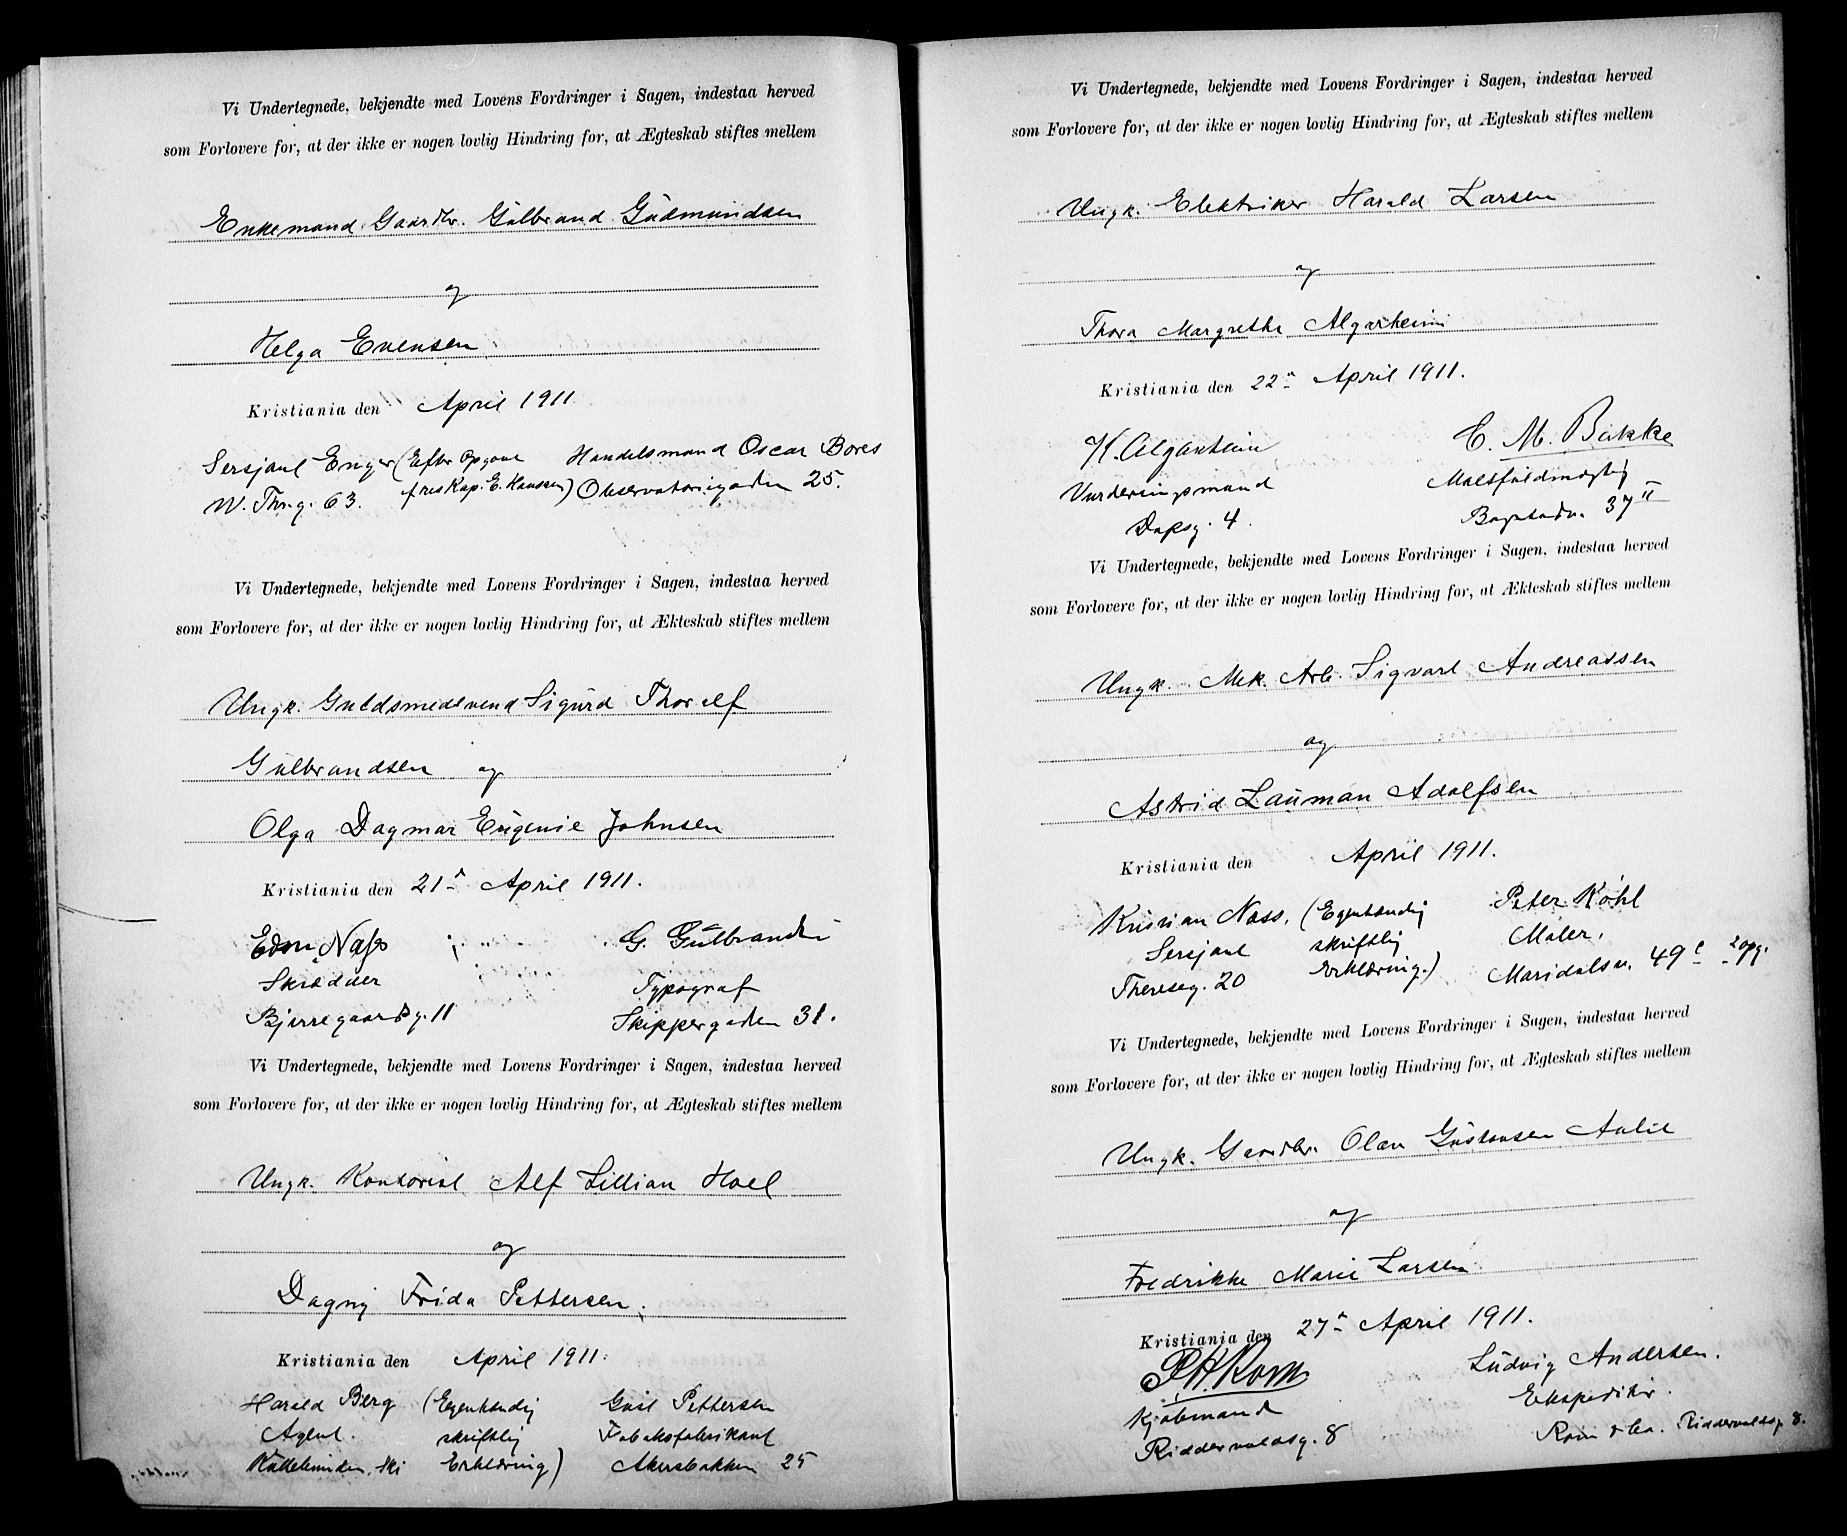 Vi Undertegnede, bekjendte med Lovens Fordringer i Sagen, indestaa herved
som Forlovere for, at der ikke er nogen lovlig Hindring for, at Ægteskab stiftes mellem
Enkemand Gaardbr. Gulbrand Gudmundsen
og
Helga Evensen
Kristiania den April 1911
Sersjant Enger (Efter Opgave Handelsmand Oscar Bores
W. Thr.g. 63. fres Kap. E. Hansen) Observatoriegaden 25.
Vi Undertegnede, bekjendte med Lovens Fordringer i Sagen, indestaa herved
som Forlovere for, at der ikke er nogen lovlig Hindring for, at Ækteskab stiftes mellem
Ungk. Guldsmedsvend Sigurd Thoralf
Gulbrandsen og
Olga Dagmar Eugenie Johnsen
Kristiania den 21 April 1911.
Edv. Næss G. Gulbrandsen
Skrædder Typograf
Bjerregaardsg. 11 Skippergaden 31.
Vi Undertegnede, bekjendte med Lovens Fordringer i Sagen, indestaa herved
som Forlovere for, at der ikke er nogen lovlig Hindring for, at Ægteskab stiftes mellem
Ungk. Kontorist Alf Lillian Hoel
og
Dagny Frida Pettersen.
Kristiania den April 1911.
Harald Berg (Egenhændig Gust Pettersen
Agent. skriftlig Tobaksfabrikant
Ski Erklæring) Akersbakken 25
Vi Undertegnede, bekjendte med Lovens Fordringer i Sagen, indestaa herved
som Forlovere for, at der ikke er nogen lovlig Hindring for, at Ægteskab stiftes mellem
Ungk. Elektriker Harald Larsen
og
Thora Margrethe Algarheim
Kristiania den 22 April 1911.
H. Algarheim C. M. Bakke
Vurderingsmand Maltfuldmægtig
Dopsg. 4. Bogstadv. 37 II
Vi Undertegnede, bekjendte med Lovens Fordringer i Sagen, indestaa herved
som Forlovere for, at der ikke er nogen lovlig Hindring for, at Ækteskab stiftes mellem
Ungk. Mek. Arb. Sigvart Andreassen
og
Astrid Lauman Adolfsen
Kristiania den April 1911.
Kristian Næss, (Egenhændig Peter Køhl
Sersjant skriftlig Maler,
Thereseg. 20 Erklæring.) Maridalsv. 49 c 2 opg.
Vi Undertegnede, bekjendte med Lovens Fordringer i Sagen, indestaa herved
som Forlovere for, at der ikke er nogen lovlig Hindring for, at Ægteskab stiftes mellem
Ungk. Gaardbr. Olav Gustavsen Aulie
og
Fredrikke Marie Larsen
Kristiania den 27 April 1911.
P. H. Rom Ludvig Andersen.
Kjøbmand Ekspeditør.
Riddervoldsg. 8 Rom & Co. Riddervoldsg 8.